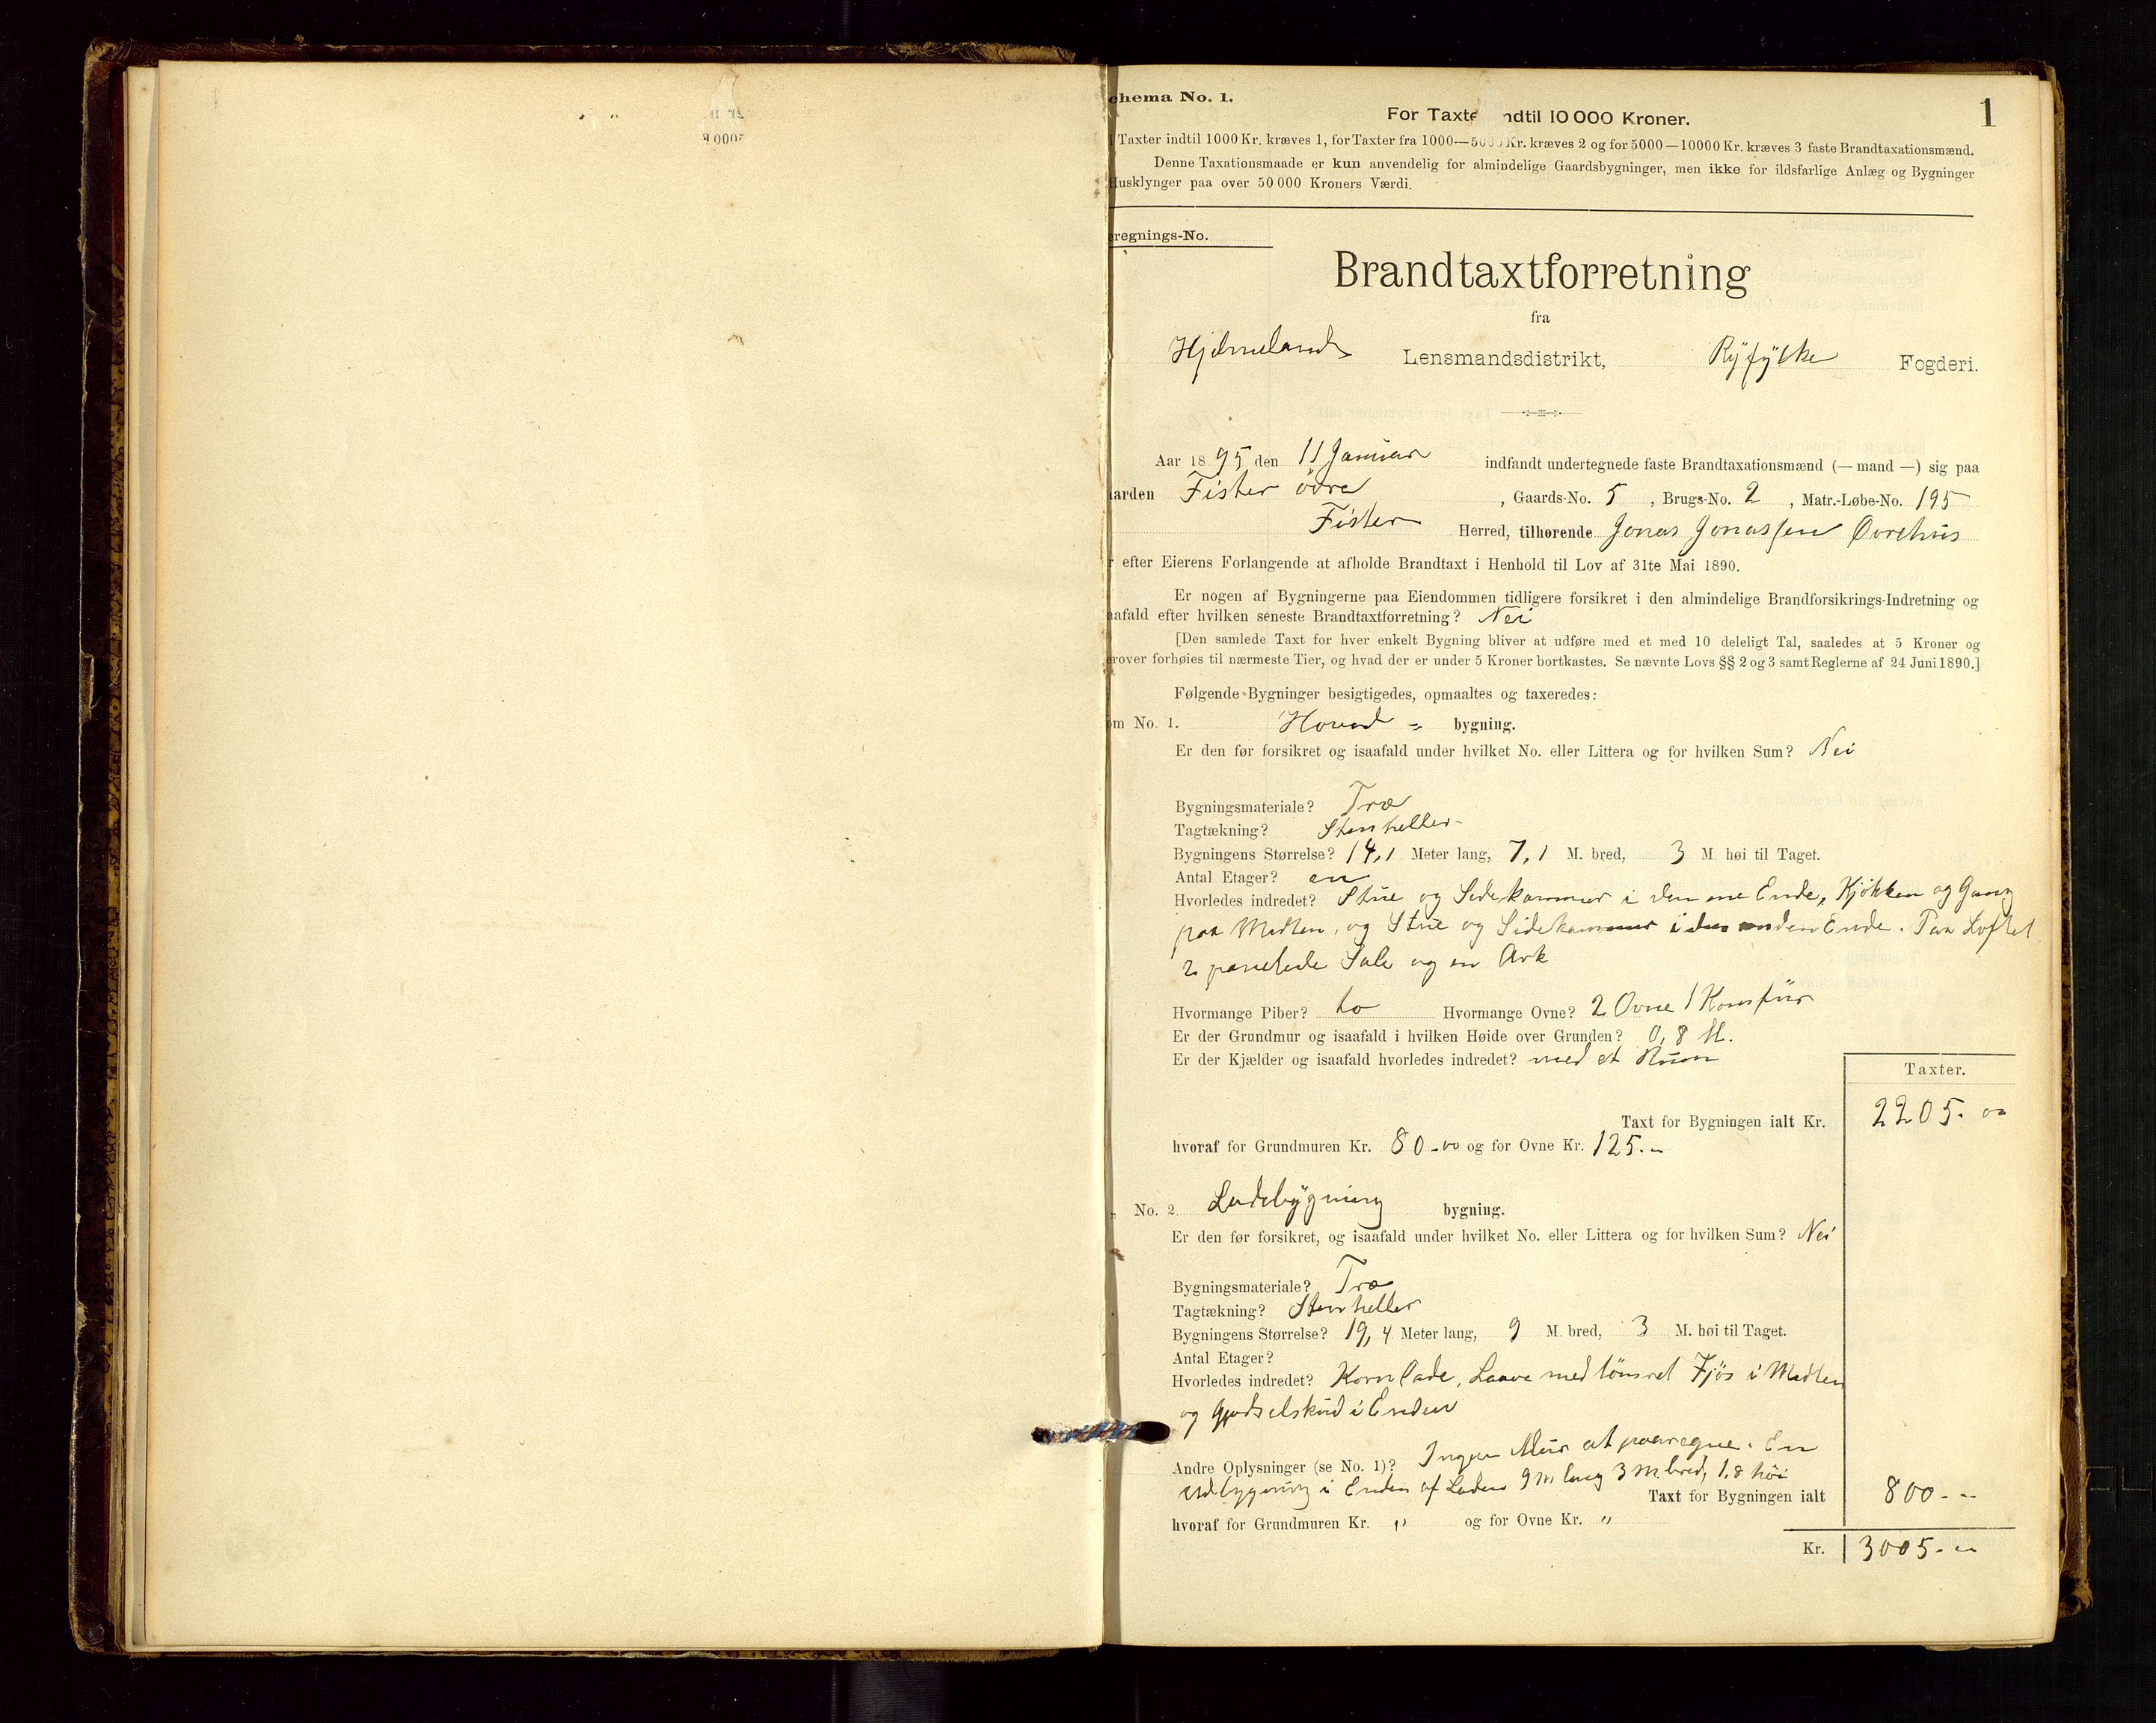 1
chema No. 1.
For Taxte ndtil 10 000 Kroner.
Taxter indtil 1000 Kr. kræves 1, for Taxter fra 1000—5000 Kr. kræves 2 og for 5000—10000 Kr. kræves 3 faste Brandtaxationsmænd.
Denne Taxationsmaade er kun anvendelig for almindelige Gaardsbygninger, men ikke for ildsfarlige Anlæg og Bygninger
Husklynger paa over 50 000 Kroners Værdi.
regnings-No.
Brandtaxtforretning
fra
Hjelmelands Lensmandsdistrikt, Ryfylke Fogderi.
Aar 1895 den 11 Januar indfandt undertegnede faste Brandtaxationsmænd (— mand —) sig paa
arden Fister övre, Gaards-No. 5, Brugs-No. 2, Matr.-Løbe-No. 195
Fister Herred, tilhørende Jonas Jonassen Øvrehus
r efter Eierens Forlangende at afholde Brandtaxt i Henhold til Lov af 31te Mai 1890.
Er nogen af Bygningerne paa Eiendommen tidligere forsikret i den almindelige Brandforsikrings-Indretning og
aafald efter hvilken seneste Brandtaxtforretning? Nei
[Den samlede Taxt for hver enkelt Bygning bliver at udføre med et med 10 deleligt Tal, saaledes at 5 Kroner og
erover forhøies til nærmeste Tier, og hvad der er under 5 Kroner bortkastes. Se nævnte Lovs §§ 2 og 3 samt Reglerne af 24 Juni 1890.]
Følgende Bygninger besigtigedes, opmaaltes og taxeredes:
om No. 1. Hoved - bygning.
Er den før forsikret og isaafald under hvilket No. eller Littera og for hvilken Sum? Nei
Bygningsmateriale? Træ
Tagtækning? Stenheller
Bygningens Størrelse? 14,1 Meter lang, 7,1 M. bred, 3 M. høi til Taget.
Antal Etager? en
Hvorledes indredet? Stue og Sidekammer i den ene Ende, Kjøkken og Gang
paa Midten, og Stue og Sidekammer i den anden Ende. Paa Loftet
2 panelede Sale og en Ark
Hvormange Piber? to Hvormange Ovne? 2 Ovne 1 Komfur
Er der Grundmur og isaafald i hvilken Høide over Grunden? 0,8 M.
Er der Kjælder og isaafald hvorledes indredet? med et Rum
Taxter.
Taxt for Bygningen ialt Kr. 2205.00
hvoraf for Grundmuren Kr. 80-00 og for Ovne Kr. 125.-
No. 2. Ladebygning bygning.
Er den før forsikret, og isaafald under hvilket No. eller Littera og for hvilken Sum? Nei
Bygningsmateriale? Træ
Tagtækning? Stenheller
Bygningens Størrelse? 19,4 Meter lang, 9 M. bred, 3 M. høi til Taget.
Antal Etager?
Hvorledes indredet? Kornlade, Laave med tömret Fjös i Midten
og Gjødselskud i Enden
Andre Oplysninger (se No. 1)? Ingen Mur at paaregne. En
Udbygning i Enden af Laden 9 m lang 3 m bred, 1,8 høi
Taxt for Bygningen ialt 800--
hvoraf for Grundmuren Kr. " og for Ovne Kr. "
Kr. 3005.-